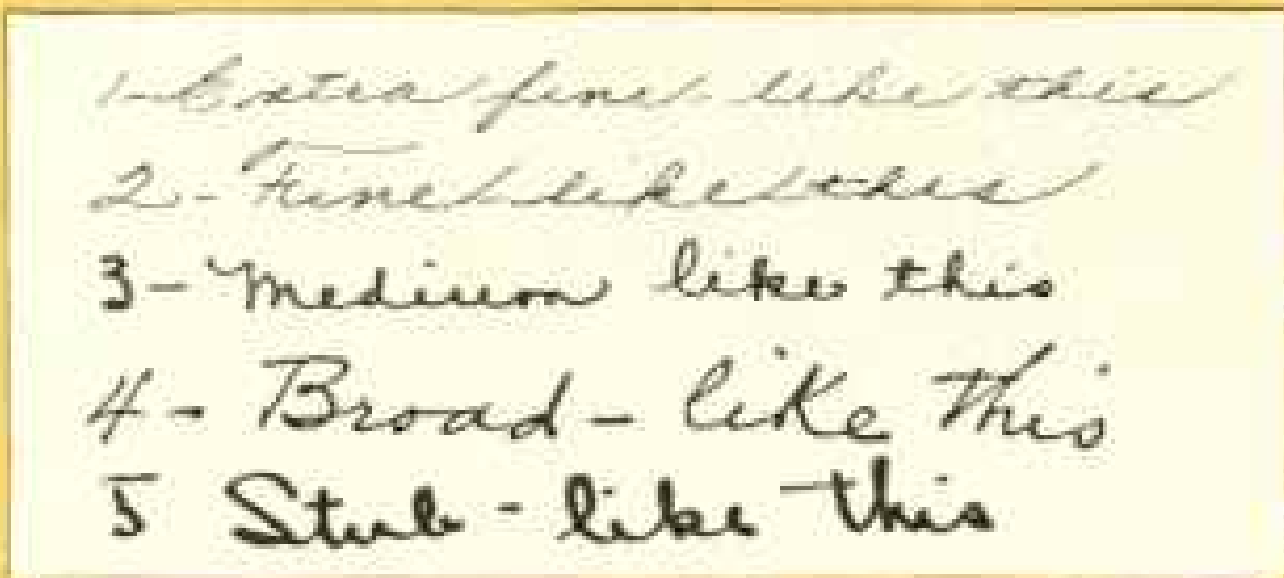 1-Extra fine like this
2- Fine like this
3- Medium like this
4- Broad- like This
5 Stub - like this